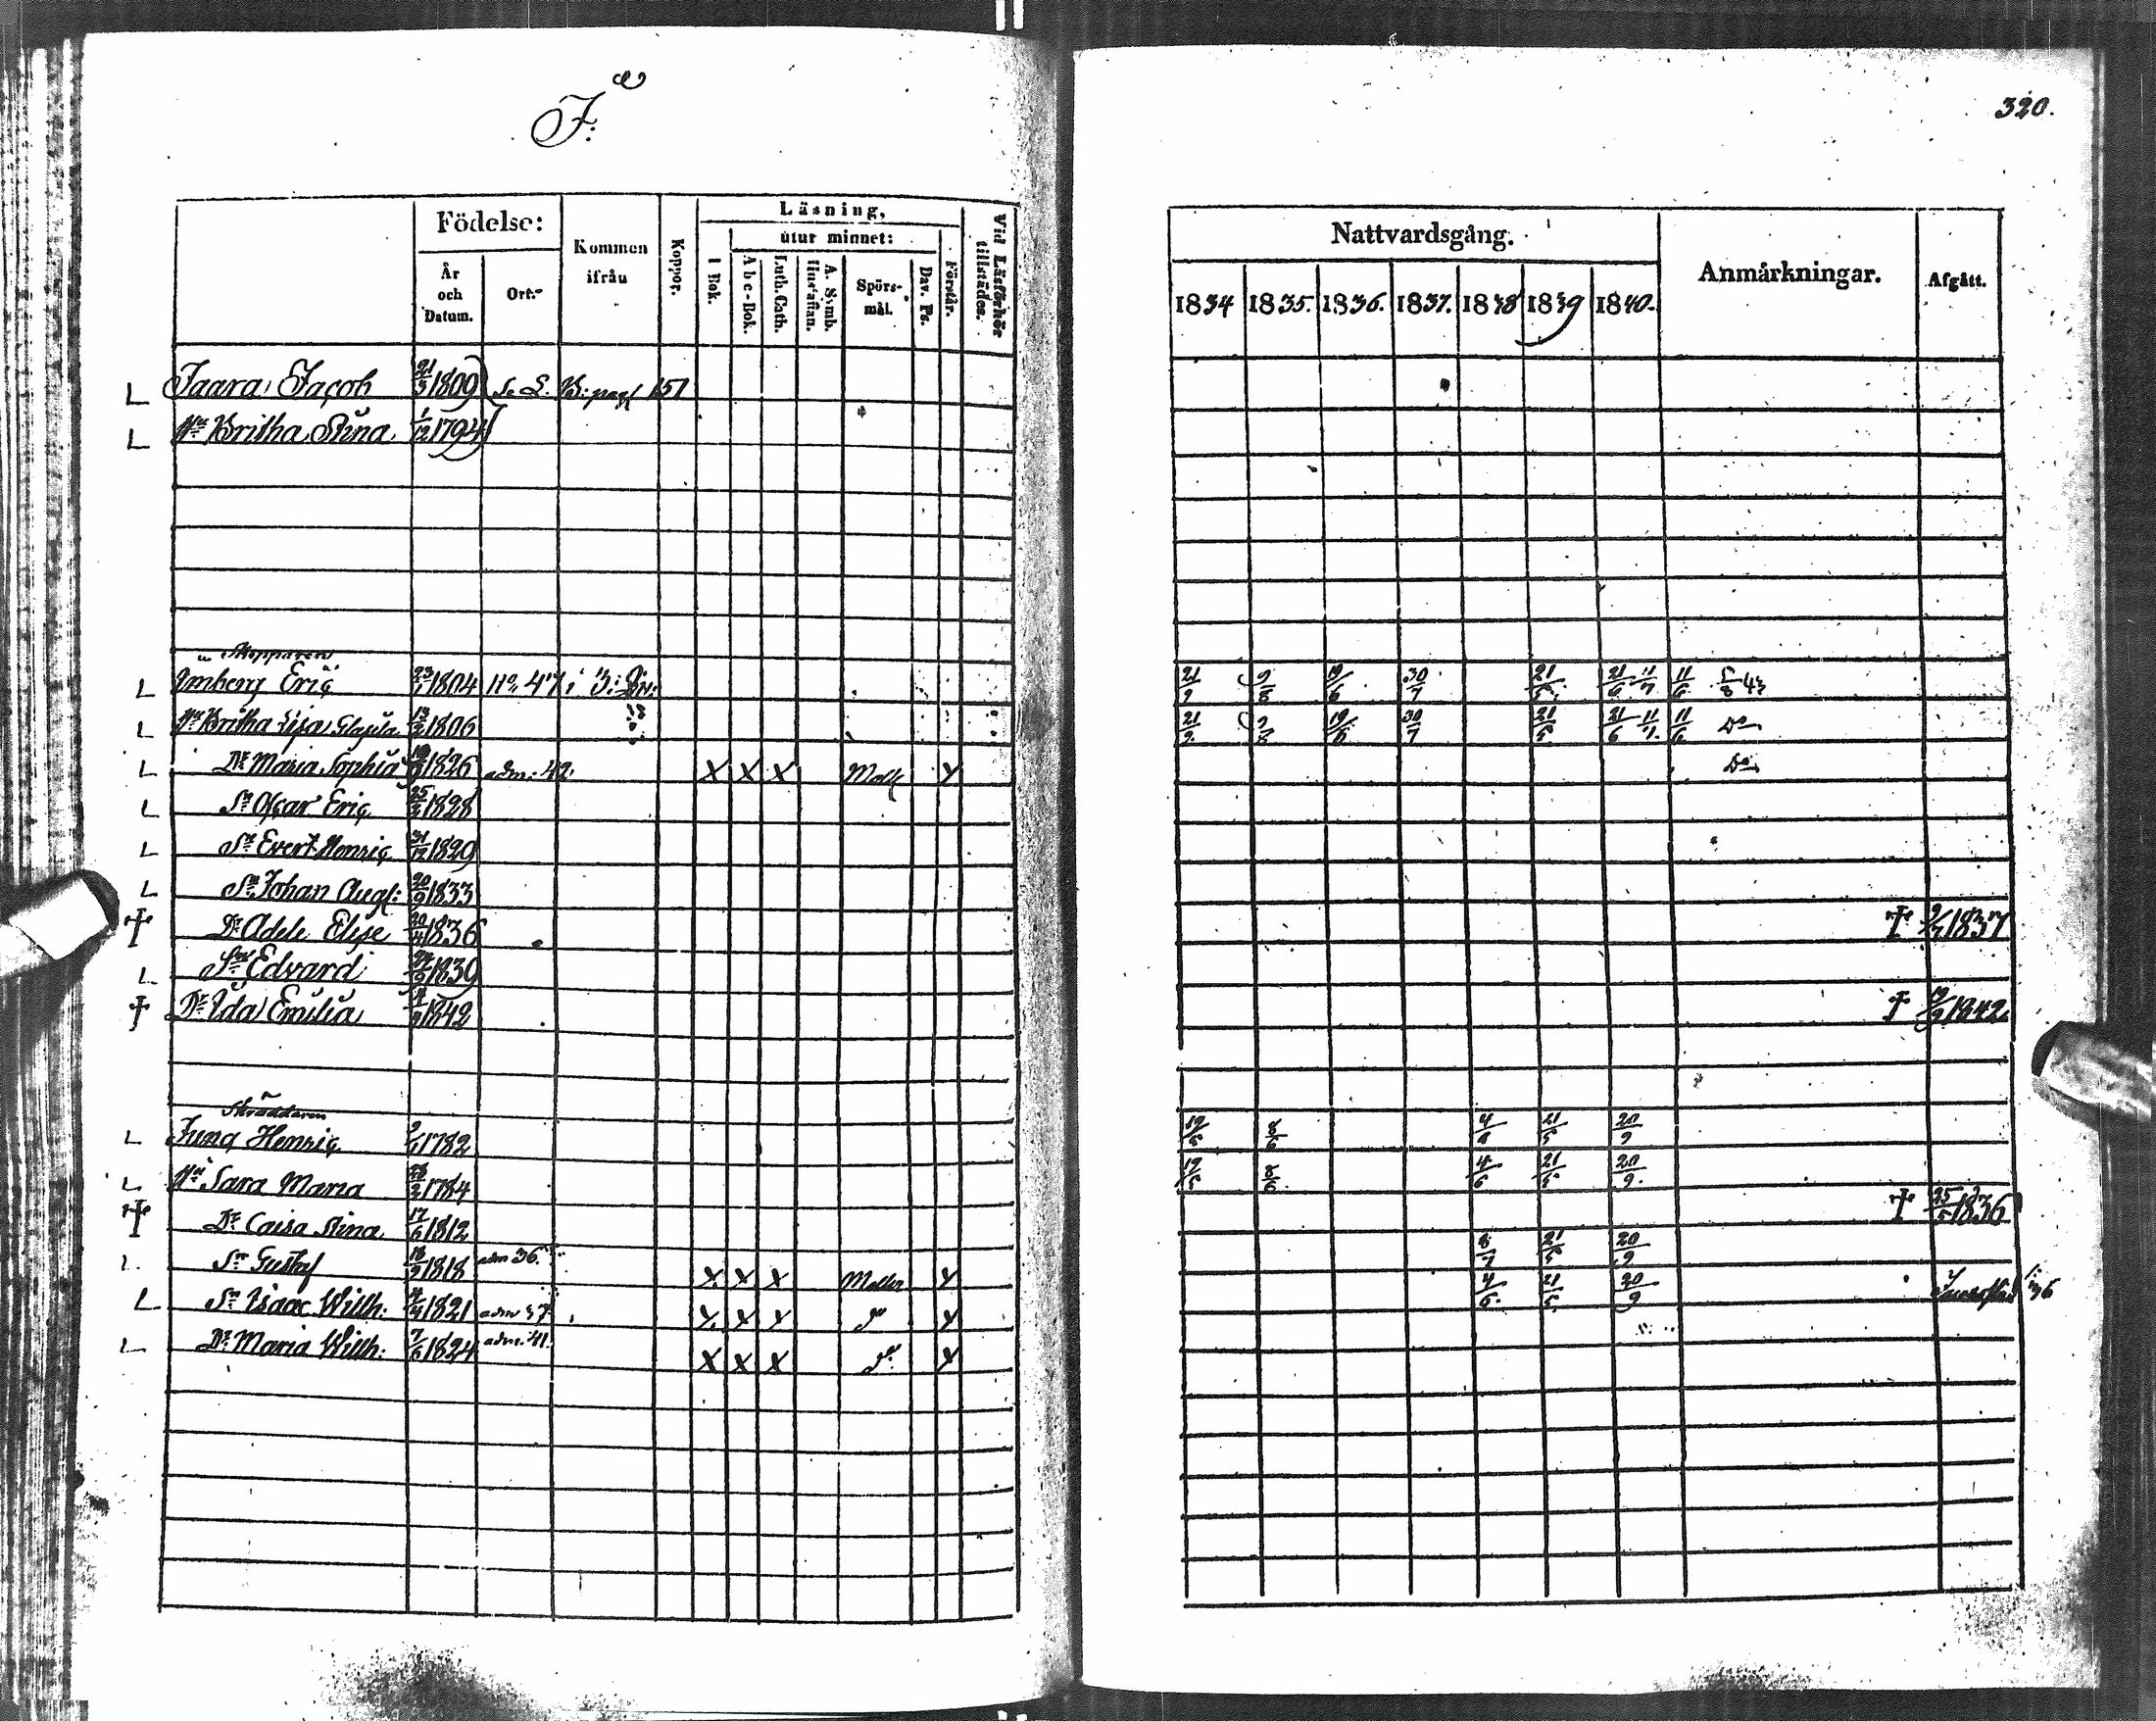 J:
320.
Födelse:
År och Datum.
Ort.
Kommen ifrån
Koppor.
Läsning,
utur minnet:
I Bok.
Abc-Bok.
Luth. Cath.
A. Symb. Hustaflan.
Spörs-mål.
Dav. Ps.
Förstår.
Vid Läsförhör tillstädes.
Nattvardsgång.
1834 1835. 1836. 1837. 1838 1839 1840.
Anmärkningar.
Afgått.
L Jaara Jacob 21/3 1809 S. L. B: pag 151
L Hu Britha Stina 1/12 1794
L Imberg Eric 23/1 1804 No 47 i 3: 21/9 9/8 19/6 30/7 21/5 21/6 11/7 11/6 43
L Hu Britha Lisa 13/2 1806 21/9 9/8 19/6 30/7 21/5 21/6 11/7 11/6 Do
L Dr Maria Sophia 1826 adm. 42. X X X Y Do
L Sn Oscar Eric 25/2 1828
L Sn Evert Henric 31/12 1829
L Sn Johan Aug: 20/9 1833
† Dr Adele Elise 20/4 1836 † 9/7 1837
L Sn Edvard 1839
† Dr Ida Emilia 1842 † 1842
Skräddaren
L Jung Henric 1782 19/5 8/6 21/5 20/9
L Hu Sara Maria 1784 19/5 8/6 4/6 21/5 20/9
† Dr Caisa Stina 17/6 1812 † 25/5 1836
L Sn Gustaf 18/9 1818 adm 36. X X X Y 21/5 20/9
L Sn Isaac Wilh: 4/4 1821 adm 37 X X X Y 4/6 21/5 20/9
L Dr Maria Wilh: 7/6 1824 adm. 41. X X X Y